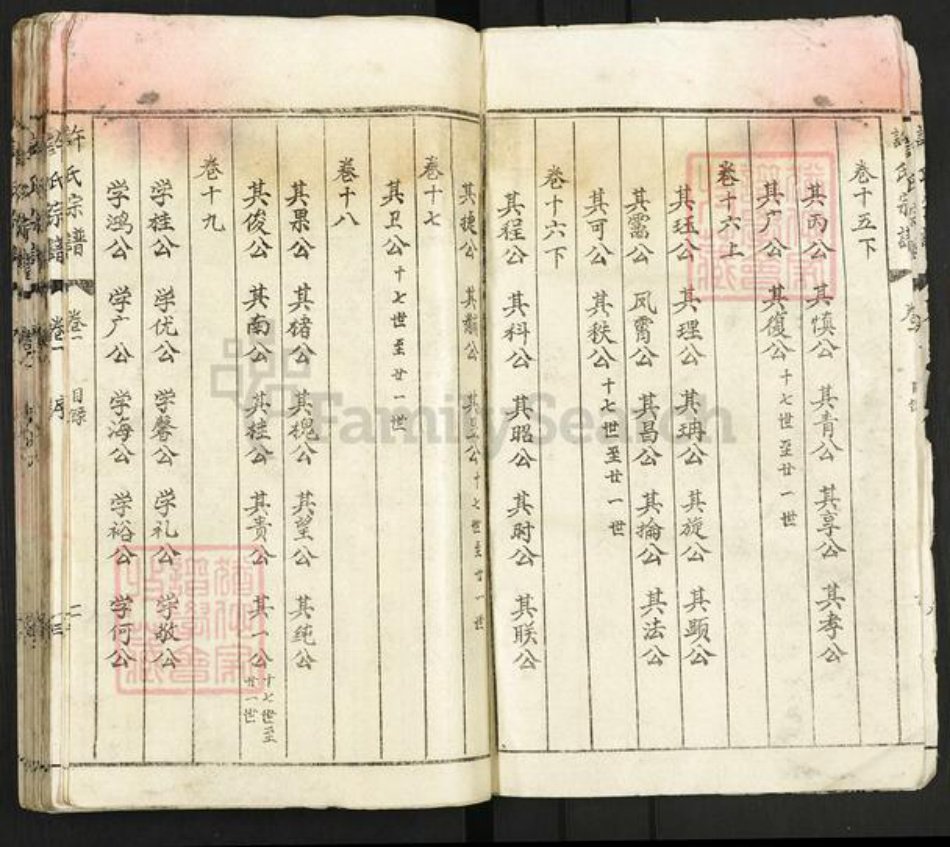 卷十五下
其丙公 其慎公 其青公 其享公 其孝公
其广公 其復公 十七世至廿一世
卷十六上
其珏公 其理公 其珃公 其旋公 其顕公
其霱公 凤霄公 其昌公 其掄公 其法公
其可公 其秩公 十七世至廿一世
卷十六下
其程公 其科公 其昭公 其时公 其朕公
其捷公 其 公 其 公 十七世至廿一世
卷十七
其卫公 十七世至廿一世
卷十八
其果公 其猪公 其槐公 其望公 其纯公
其俊公 其南公 其桂公 其贵公 其一公 十七世至廿一世
卷十九
学桂公 学优公 学馨公 学礼公 学敬公
学鸿公 学广公 学海公 学裕公 学何公
許氏宗譜 卷一 目录 二
FamilySearch